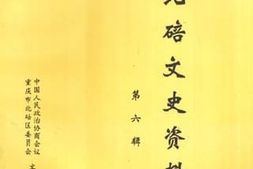 北碚文史资料
第六辑
中国人民政治协商会议
重庆市北碚区委员会